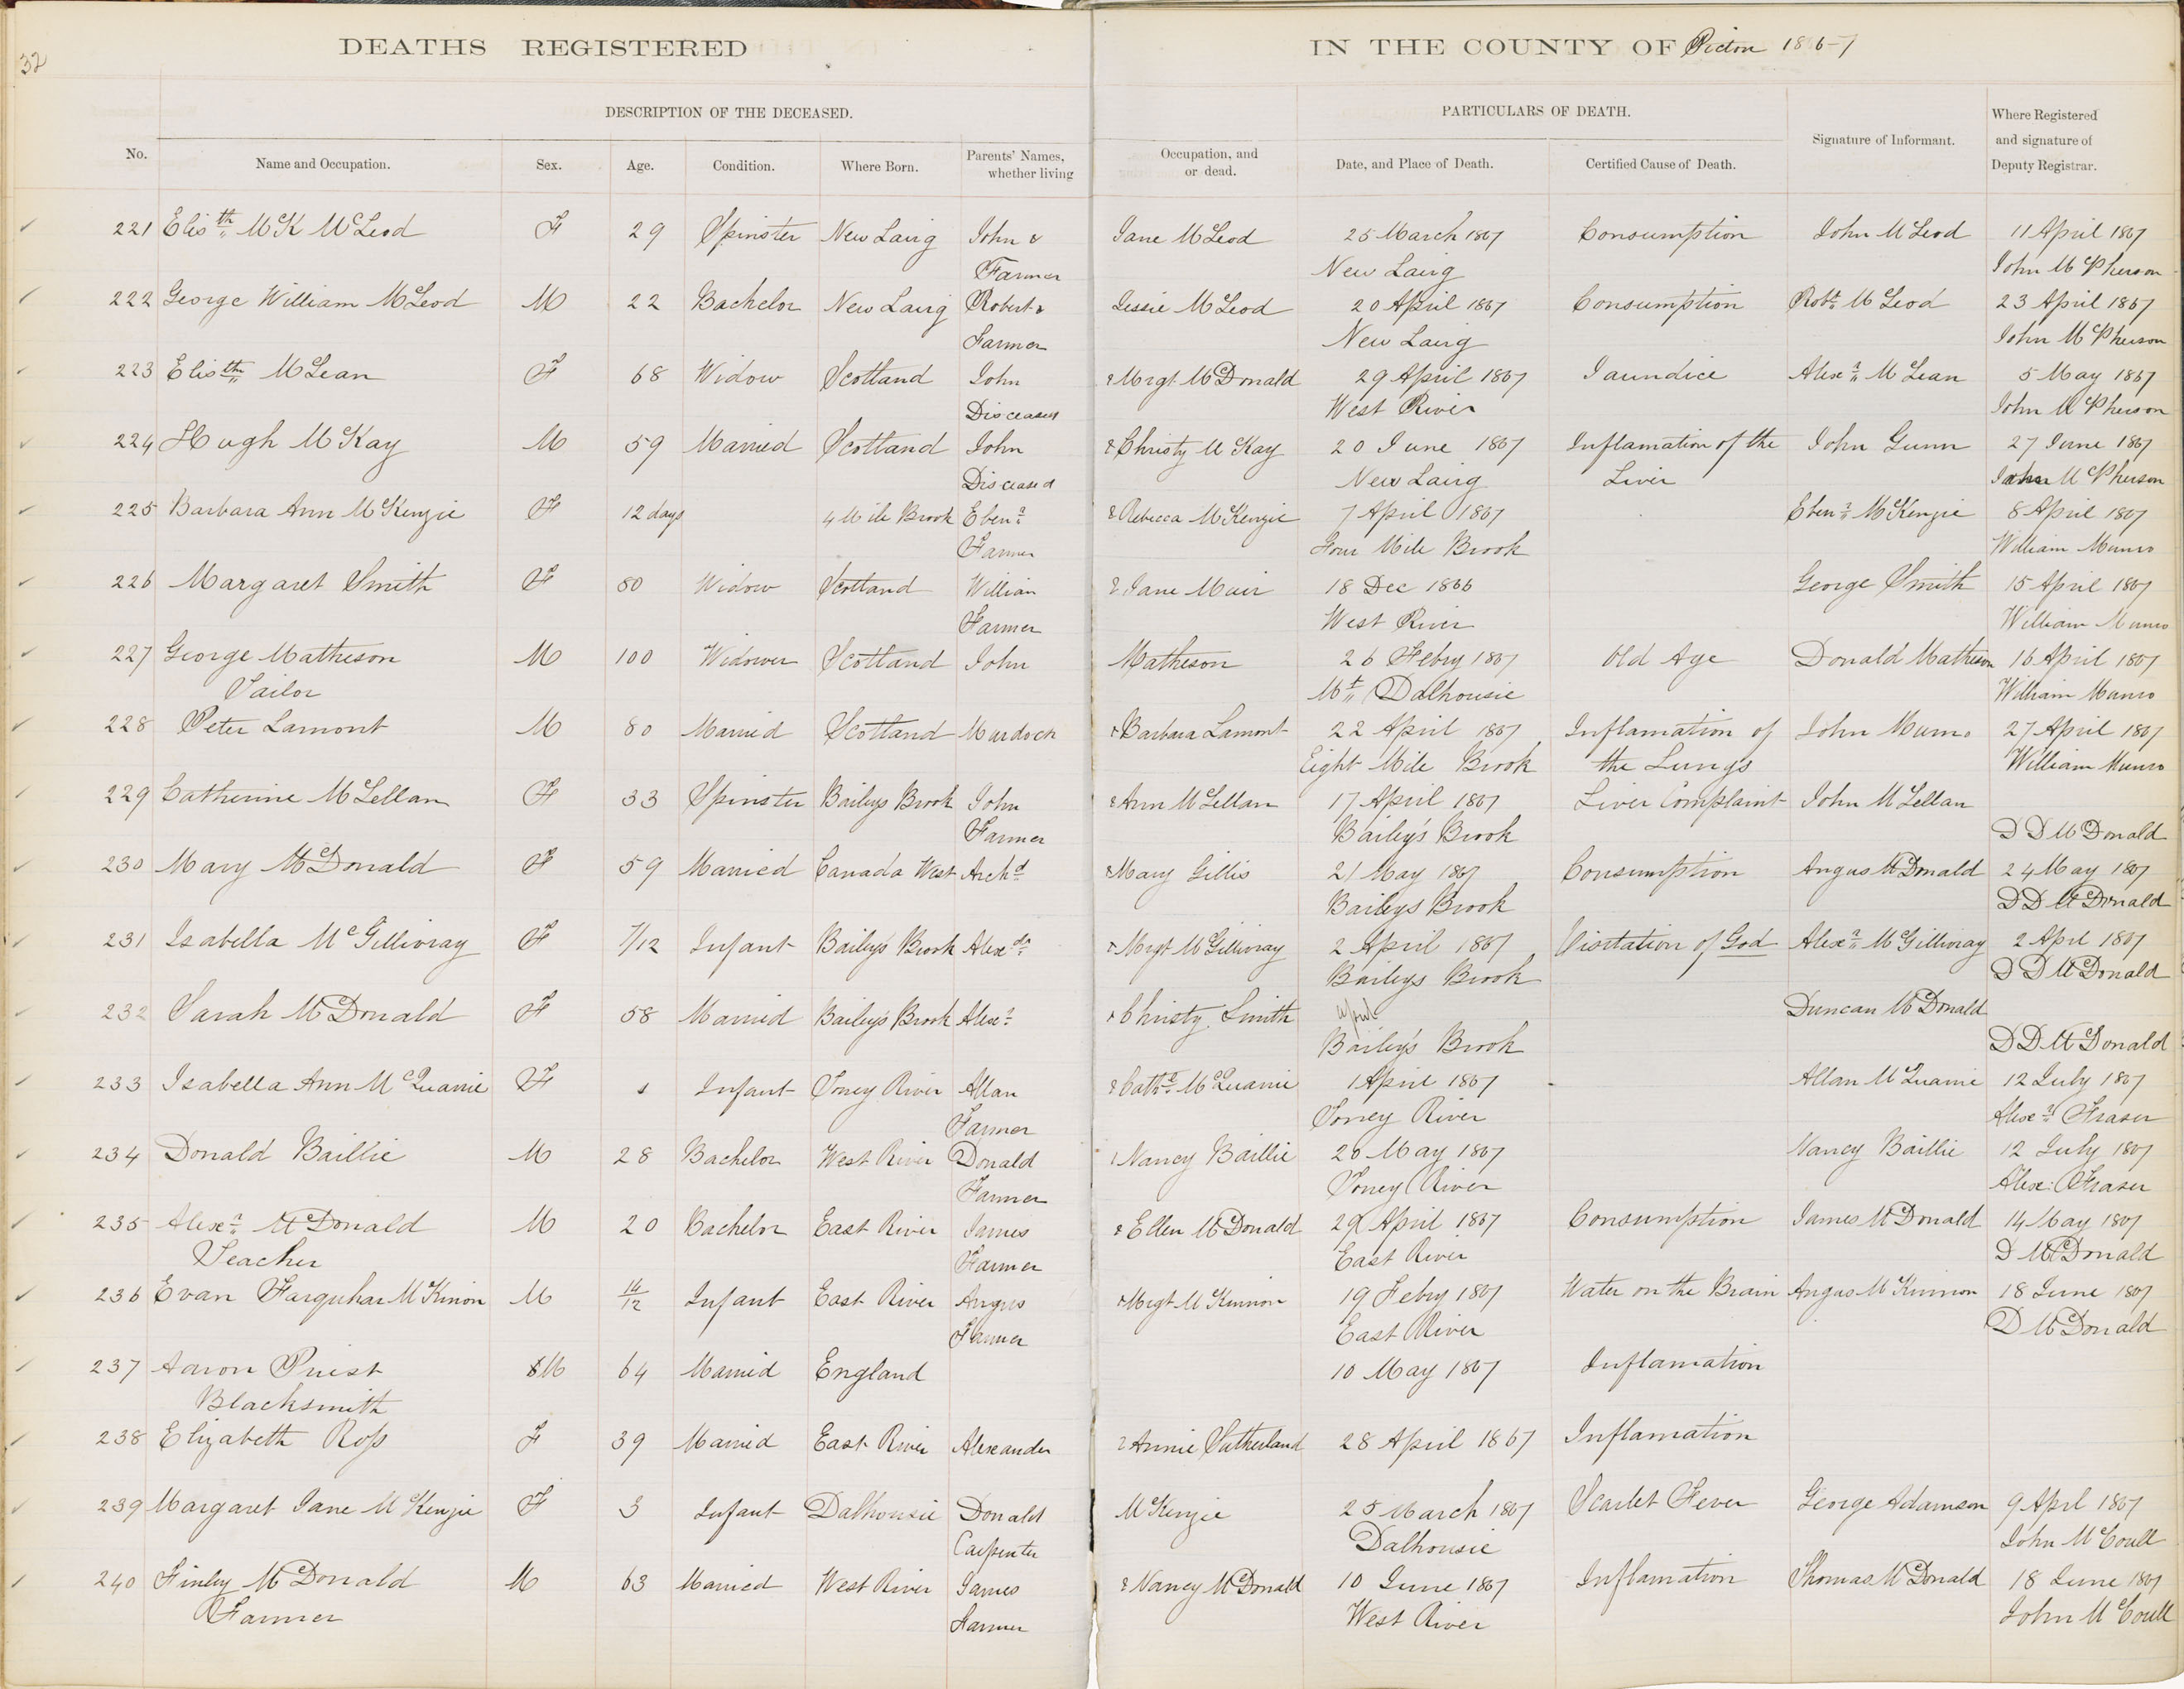 32
DEATHS REGISTERED IN THE COUNTY OF Picton 1866-7
DESCRIPTION OF THE DECEASED. PARTICULARS OF DEATH.
No. Name and Occupation. Sex. Age. Condition. Where Born. Parents' Names, whether living Occupation, and or dead. Date, and Place of Death. Certified Cause of Death. Signature of Informant. Where Registered and signature of Deputy Registrar.
221 Elisth McK McLeod F 29 Spinster New Lairg John & Jane McLeod 25 March 1867 Consumption John McLeod 11 April 1867
Farmer New Lairg John McPherson
222 George William McLeod M 22 Bachelor New Lairg Robert & Jessie McLeod 20 April 1867 Consumption Robt McLeod 23 April 1867
Farmer New Lairg John McPherson
223 Elisth McLean F 68 Widow Scotland John & Mrgt McDonald 29 April 1867 Jaundice Alexr McLean 5 May 1867
Disceased West River John McPherson
224 Hugh McKay M 59 Married Scotland John & Christy McKay 20 June 1867 Inflamation of the John Gunn 27 June 1867
Disceased New Lairg Liver John McPherson
225 Barbara Ann McKenzie F 12 days 4 Mile Brook Ebenr & Rebecca McKenzie 7 April 1867 Ebenr McKenzie 8 April 1867
Farmer Four Mile Brook William Munro
226 Margaret Smith F 80 Widow Scotland William & Jane Muir 18 Dec 1866 George Smith 15 April 1867
Farmer West River William Munro
227 George Matheson M 100 Widower Scotland John Matheson 26 Febry 1867 Old Age Donald Matheson 16 April 1867
Tailor Mt Dalhousie William Munro
228 Peter Lamont M 80 Married Scotland Murdoch & Barbara Lamont 22 April 1867 Inflamation of John Munro 27 April 1867
Eight Mile Brook the Lungs William Munro
229 Catherine McLellan F 33 Spinster Baileys Brook John & Ann McLellan 17 April 1867 Liver Complaint John McLellan
Farmer Bailey's Brook D D McDonald
230 Mary McDonald F 59 Married Canada West Archd & Mary Gillis 21 May 1867 Consumption Angus McDonald 24 May 1867
Baileys Brook D D McDonald
231 Isabella McGillivray F 7/12 Infant Baileys Brook Alexdr & Mrgt McGillivray 2 April 1867 Visitation of God Alexr McGillivray 2 Aprl 1867
Baileys Brook D D McDonald
232 Sarah McDonald F 58 Married Baileys Brook Alexr & Christy Smith April Duncan McDonald
Bailey's Brook D D McDonald
233 Isabella Ann McQuarie F 1 Infant Toney River Allan & Cathe McQuarie 1 April 1867 Allan McQuarie 12 July 1867
Farmer Toney River Alexr Fraser
234 Donald Baillie M 28 Bachelor West River Donald & Nancy Baillie 26 May 1867 Nancy Baillie 12 July 1867
Farmer Toney River Alex: Fraser
235 Alexr McDonald M 20 Bachelor East River James & Ellen McDonald 29 April 1867 Consumption James McDonald 14 May 1867
Teacher Farmer East River D McDonald
236 Evan Farquhar McKinon M 14/12 Infant East River Angus & Mrgt McKinnon 19 Febry 1867 Water on the Brain Angus McKinnon 18 June 1867
Farmer East River D McDonald
237 Aaron Priest M 64 Married England 10 May 1867 Inflamation
Blacksmith
238 Elizabeth Ross F 39 Married East River Alexander & Annie Sutherland 28 April 1867 Inflamation
239 Margaret Jane McKenzie F 3 Infant Dalhousie Donald McKenzie 25 March 1867 Scarlet Fever George Adamson 9 Aprl 1867
Carpenter Dalhousie John McCoull
240 Finley McDonald M 63 Married West River James & Nancy McDonald 10 June 1867 Inflamation Thomas McDonald 18 June 1867
Farmer Farmer West River John McCoull